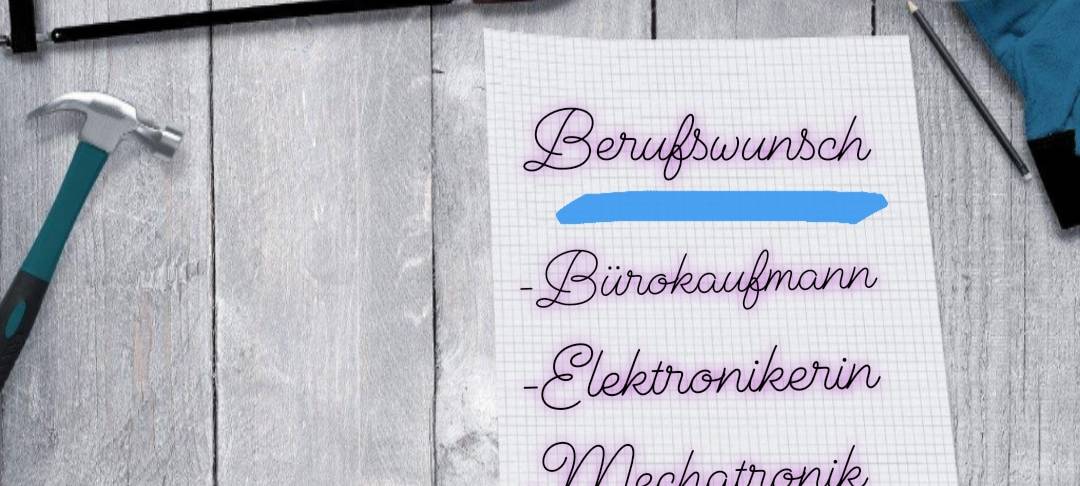 Berufswunsch
-Bürokaufmann
-Elektronikerin
Mechatronik